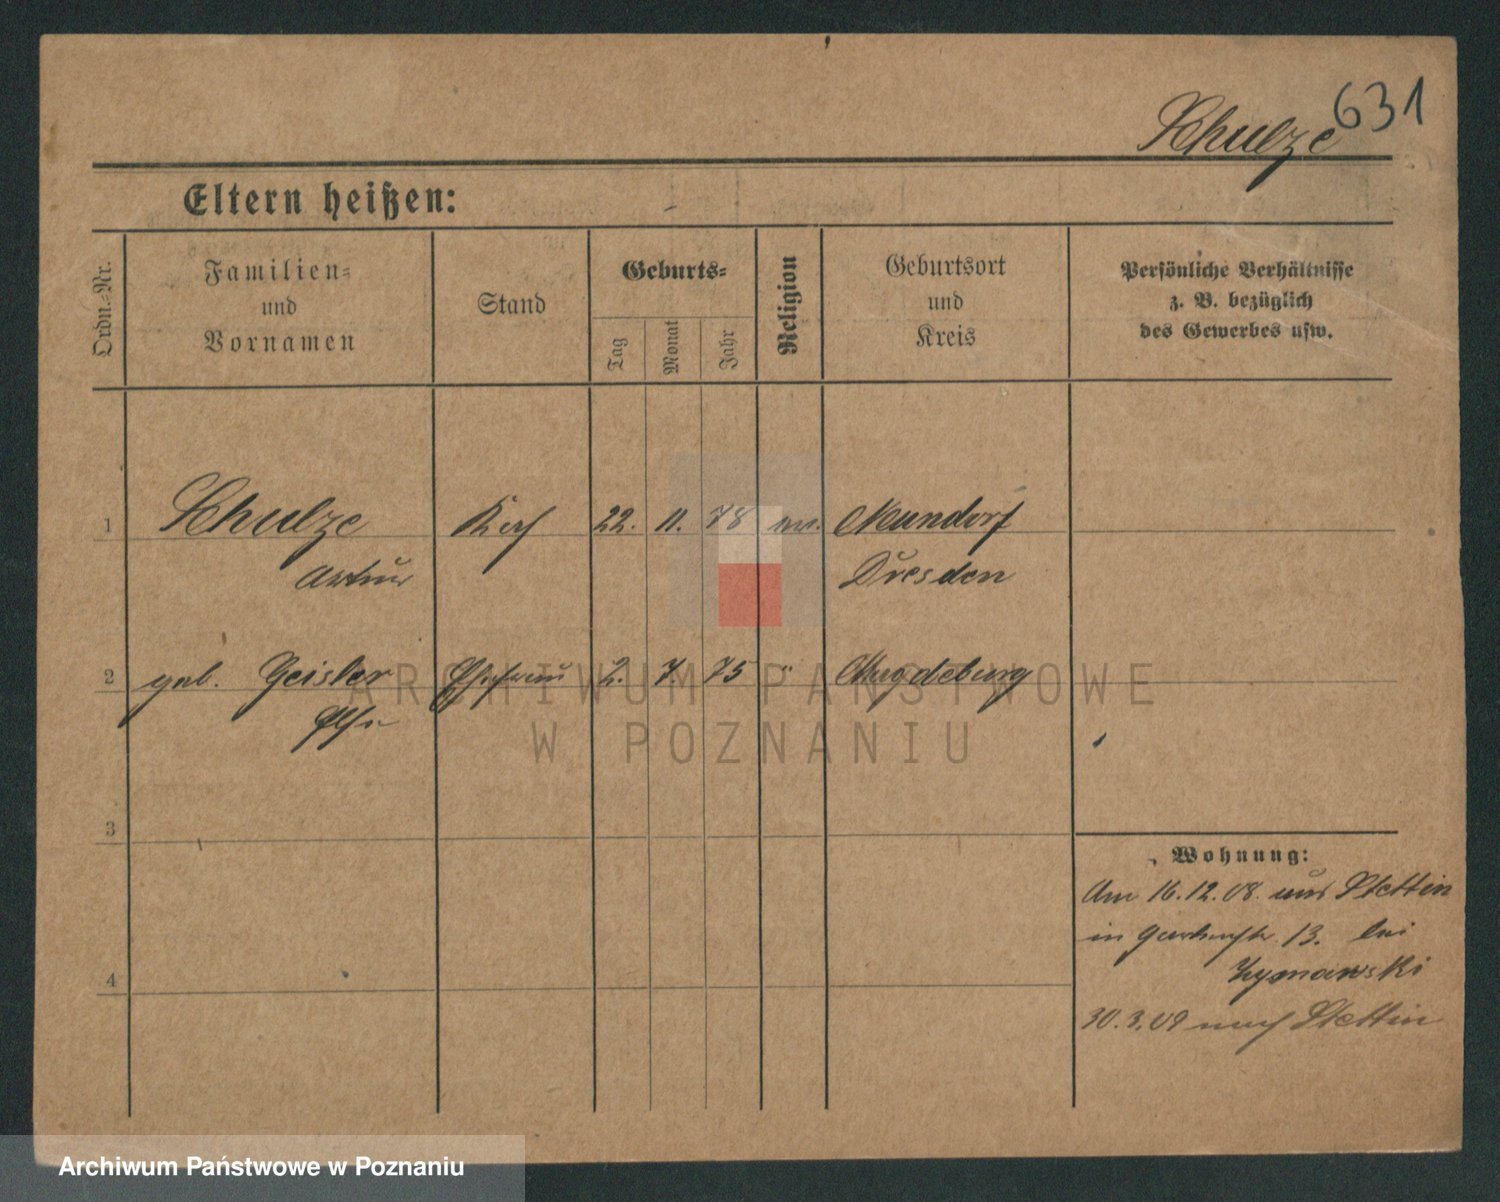 631
Schulze
Eltern heißen:
Ordn.=Nr.
Familien=
und
Vornamen
Stand
Geburts=
Tag
Monat
Jahr
Religion
Geburtsort
und
Kreis
Persönliche Verhältnisse
z. B. bezüglich
des Gewerbes usw.
1 Schulze Koch 22. 11. 78 ev. Naundorf
Artur Dresden
2 geb. Geisler Ehefrau 2. 7. 75 " Magdeburg
Else
3
4
Wohnung:
Am 16.12.08. aus Stettin
in 13. bei
Szymanski
30.3.09 nach Stettin
ARCHIWUM PAŃSTWOWE
W POZNANIU
Archiwum Państwowe w Poznaniu